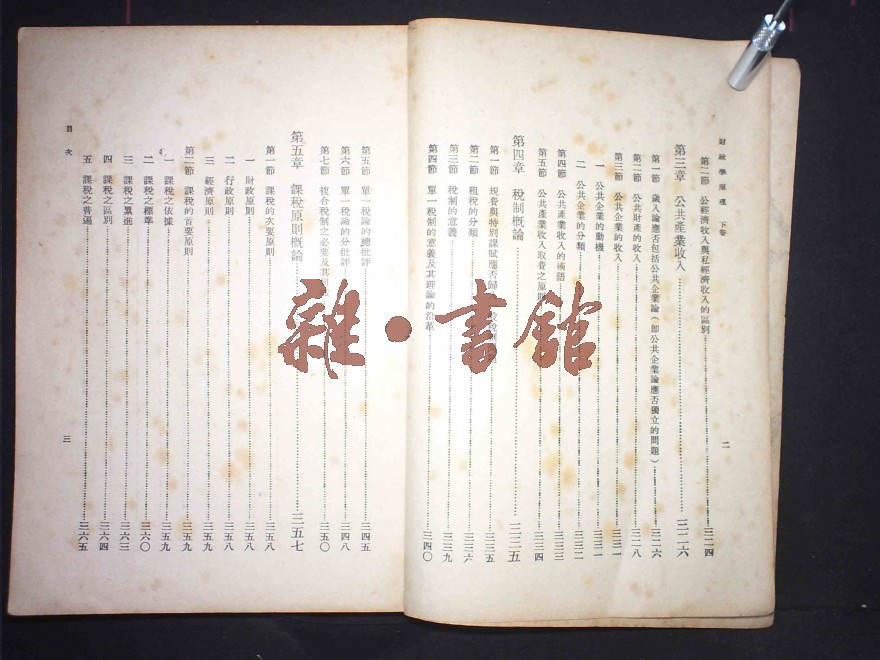 財政學原理 下卷
二
第二節 公經濟收入與私經濟收入的區別 三一四
第三章 公共產業收入 三二六
第一節 歲入論應否包括公共企業論(卽公共企業論應否獨立的問題) 三二六
第二節 公共財產的收入 三二八
第三節 公共企業的收入 三三一
一 公共企業的動機 三三一
二 公共企業的分類 三三二
第四節 公共產業收入的術語 三三四
第五節 公共產業收入取費之原則 三三四
第四章 稅制概論 三三五
第一節 規費與特別課賦應否歸 三三五
第二節 租稅的分類 三三六
第三節 稅制的意義 三三九
第四節 單一稅制的意義及其理論的沿革 三四〇
第五節 單一稅論的總批評 三四五
第六節 單一稅論的分批評 三四八
第七節 複合稅制之必要及其 三五〇
第五章 課稅原則概論 三五七
第一節 課稅的次要原則 三五八
一 財政原則 三五八
二 行政原則 三五八
三 經濟原則 三五九
第二節 課稅的首要原則 三五九
一 課稅之依據 三五九
二 課稅之標準 三六〇
三 課稅之累進 三六三
四 課稅之區別 三六四
五 課稅之普遍 三六五
目次
三
雜·書館